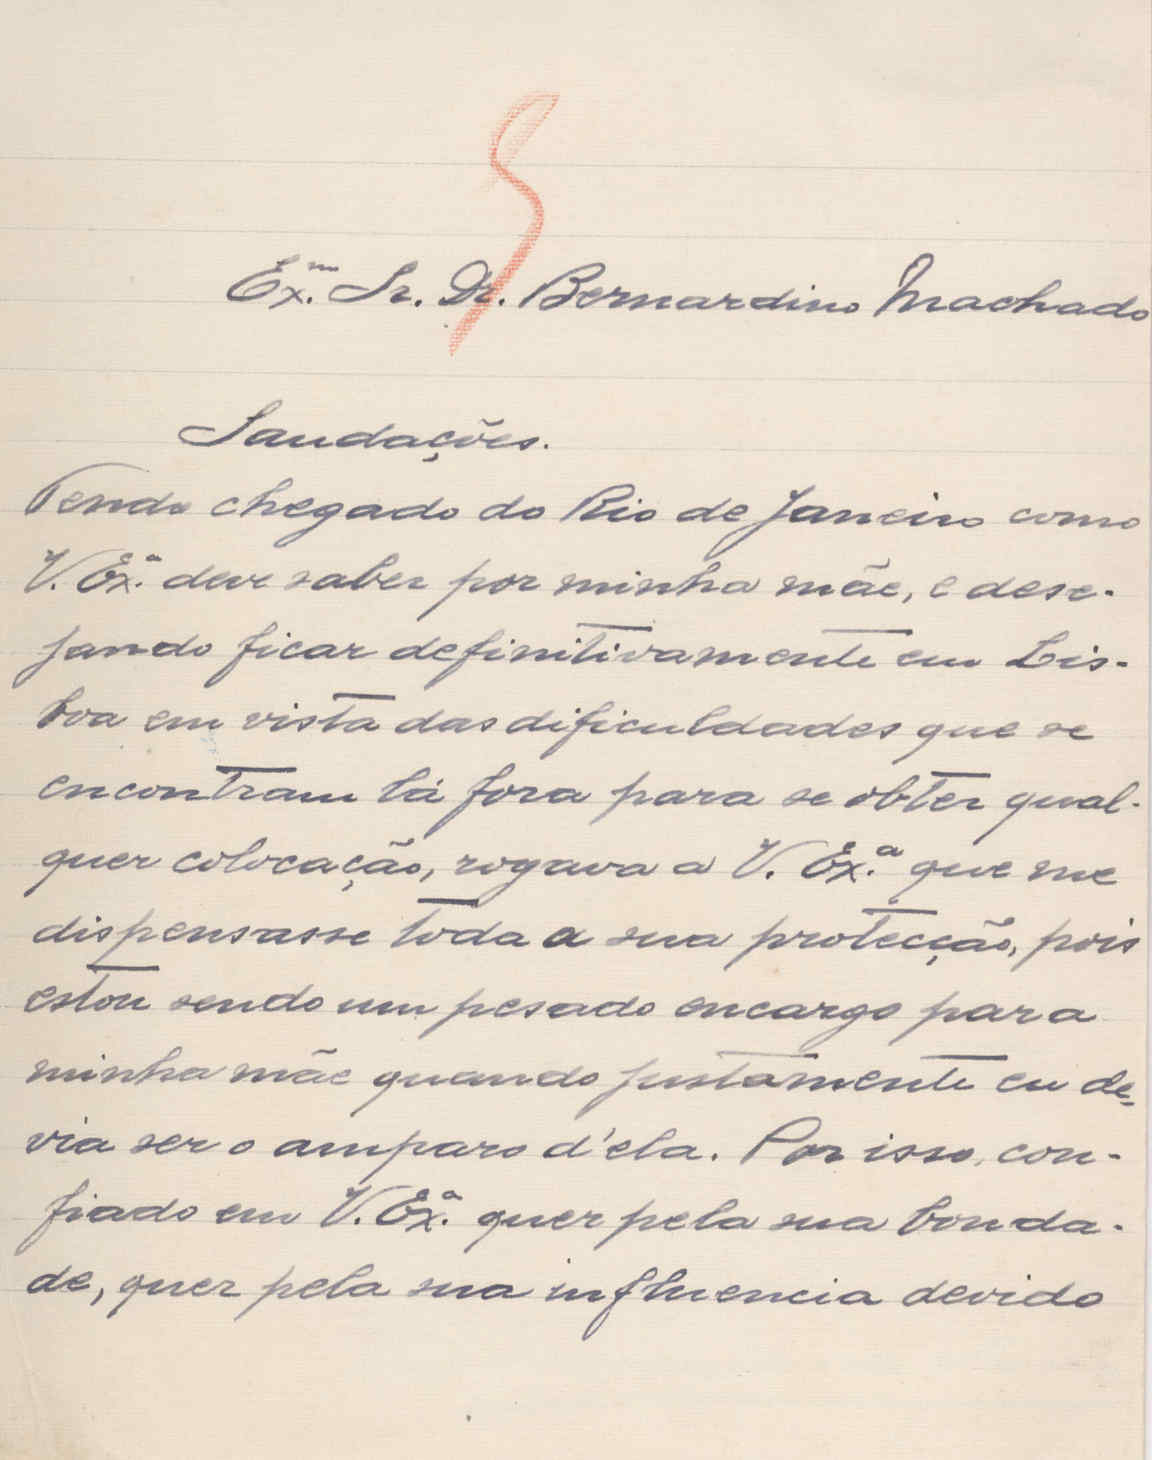 Ex.mo Sr. Dr. Bernardino Machado
Saudações.
Tendo chegado do Rio de Janeiro como
V. Ex.ª deve saber por minha mãe, e dese-
jando ficar definitivamente em Lis-
boa em vista das dificuldades que se
encontram lá fora para se obter qual-
quer colocação, rogava a V. Ex.ª que me
dispensasse toda a sua protecção, pois
estou sendo um pesado encargo para
minha mãe quando justamente eu de-
via ser o amparo d'ela. Por isso, con-
fiado em V. Ex.ª quer pela sua bonda-
de, quer pela sua influencia devido